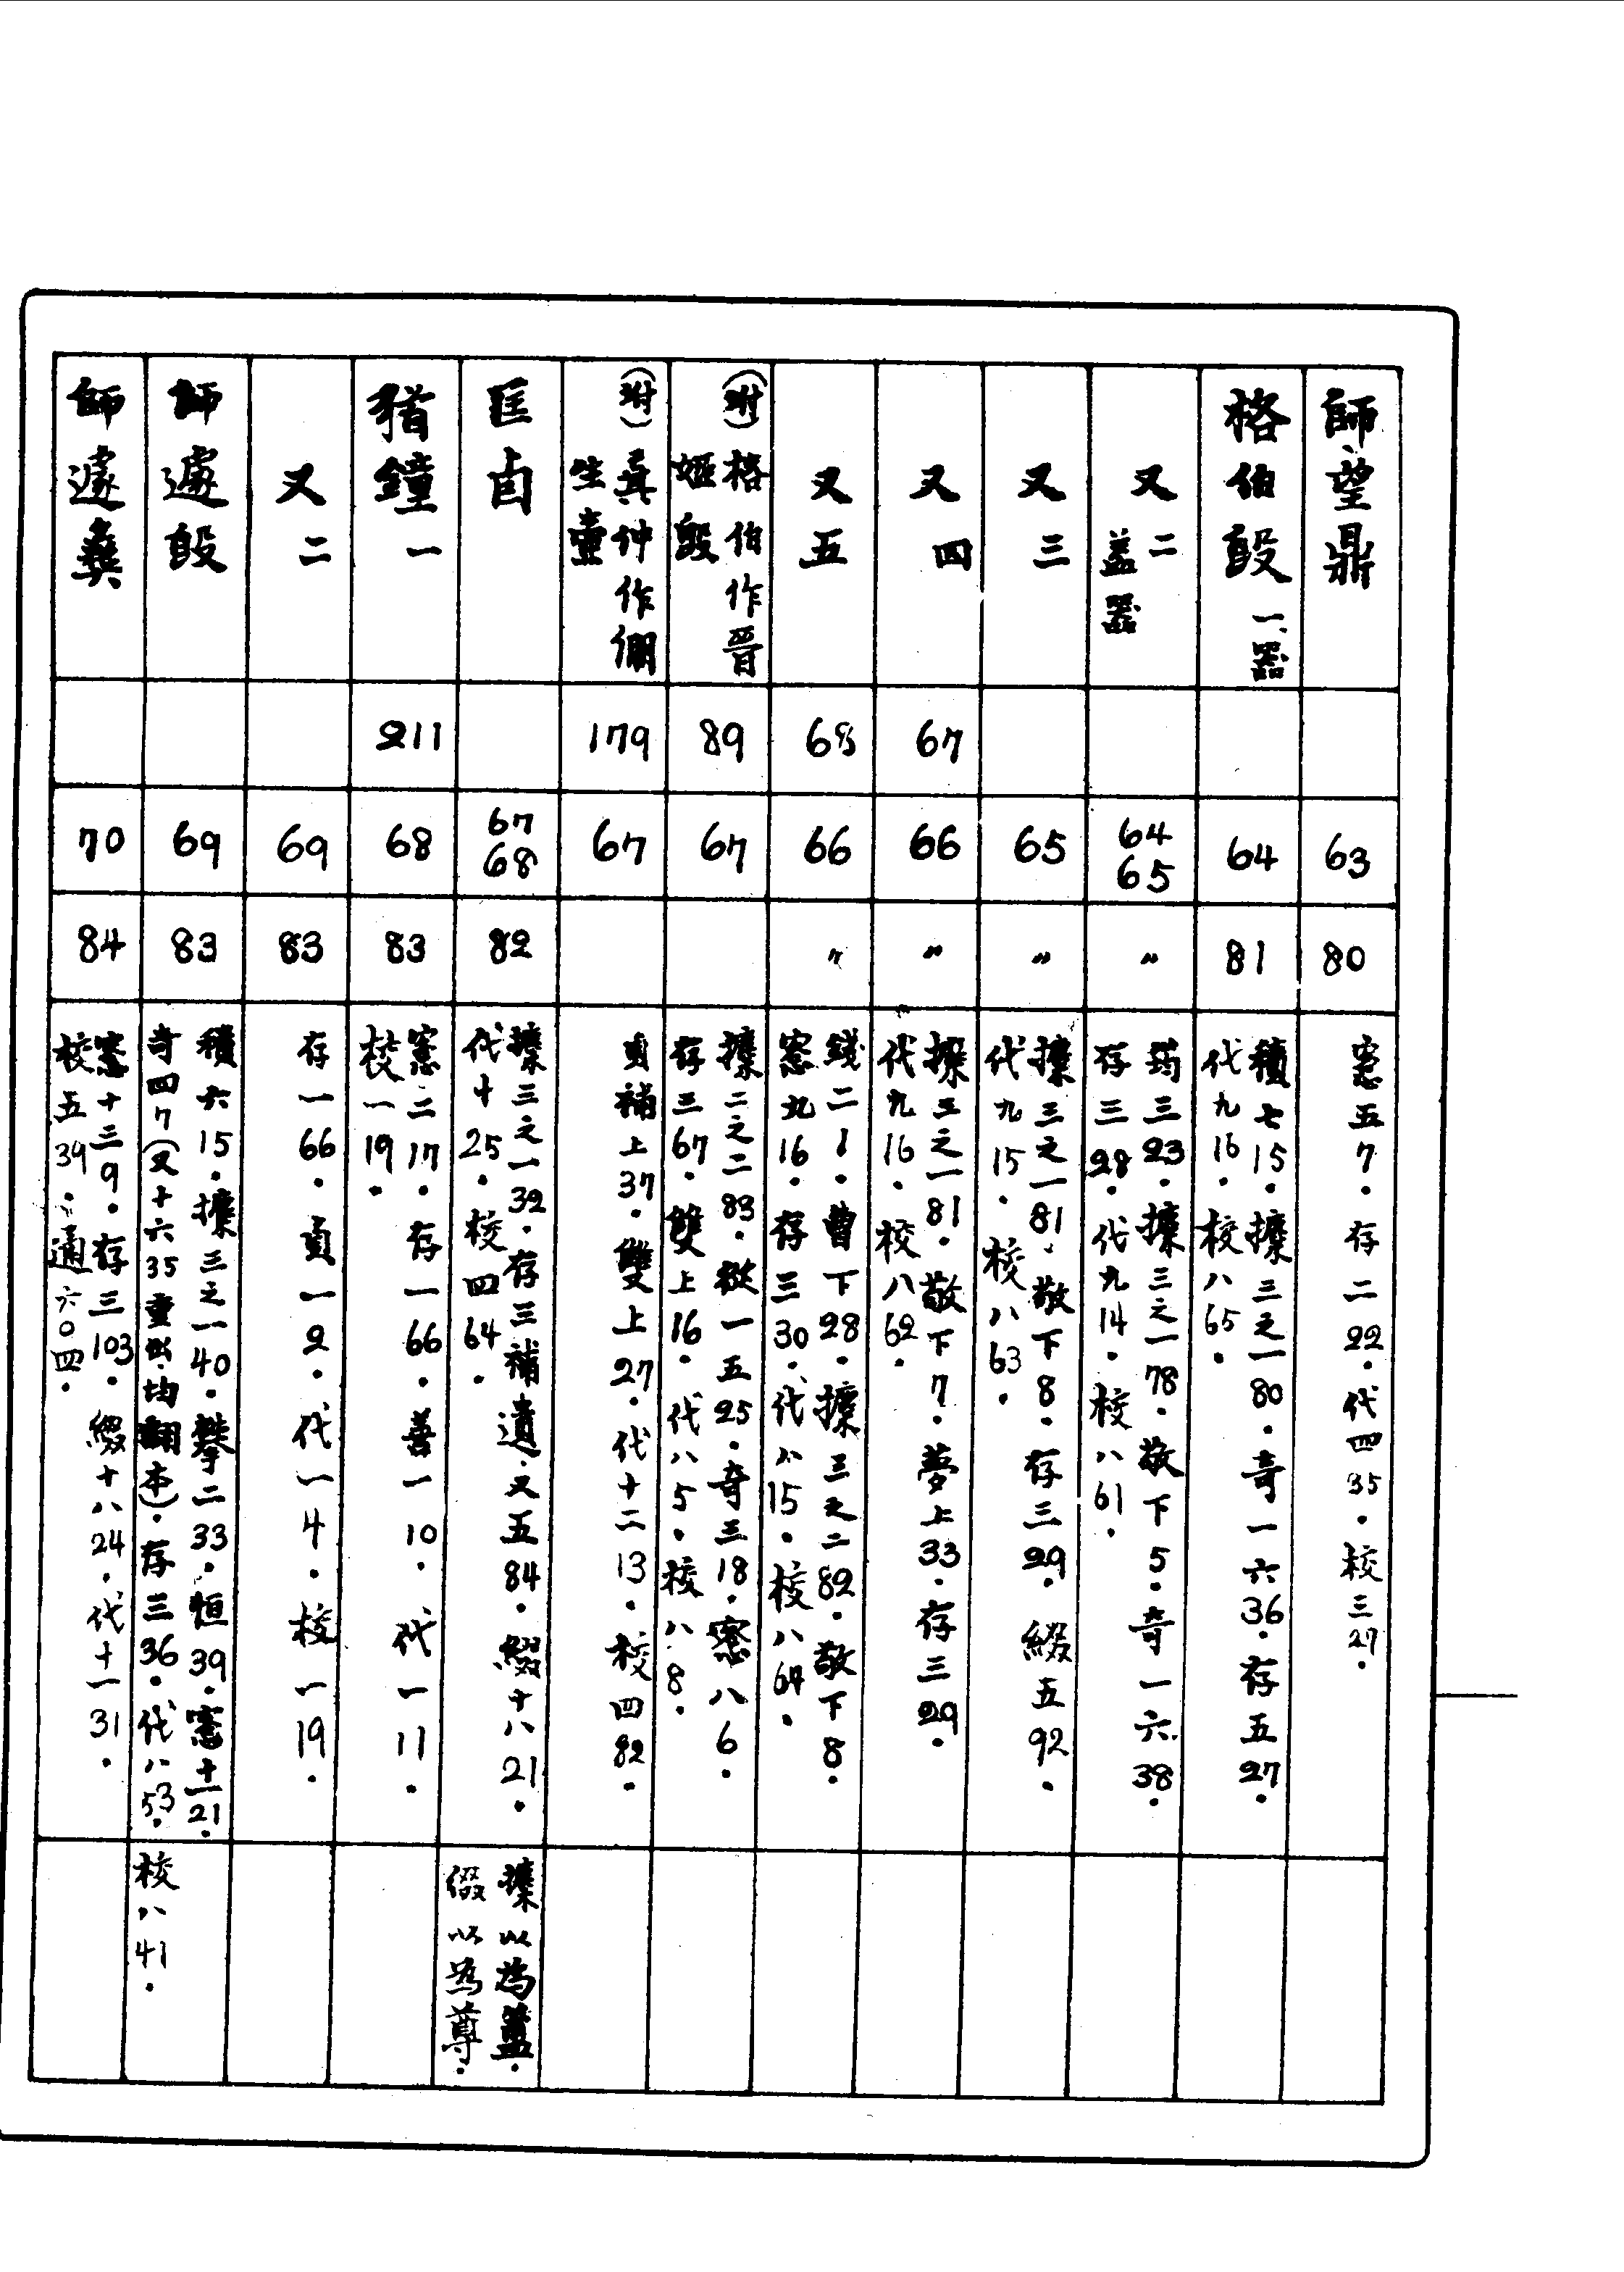 師望鼎
63
80
窓五7．存二22．代四35．校三27．
格伯𣪘 一、器
64
81
積七15．攈三之一80．奇一六36．存五27．
代九16．校八65．
又二
蓋器
64
65
〃
筠三23．攈三之一78．敬下5．奇一六38．
存三28．代九14．校八61．
又三
65
〃
攈三之一81．敬下8．存三29．綴五92．
代九15．校八63．
又四
67
66
〃
攈三之一81．敬下7．夢上33．存三29．
代九16．校八62．
又五
68
66
〃
錢二1．曹下28．攈三之二82．敬下8．
窓九16．存三30．代八15．校八64．
(坿)格伯作晉
姬𣪘
89
67
攈二之二83．從一五25．奇三18．窓八6．
存三67．雙上16．代八5．校八8．
(坿)㠱仲作倗
生壷
179
67
貞補上37．雙上27．代十二13．校四82．
匡卣
67
68
82
攈三之一32．存三補遺．又五84．綴十八21．
代十25．校四64．
攈以為簠．
綴以為尊．
猶鐘一
211
68
83
窓二17．存一66．善一10．代一11．
校一19．
又二
69
83
存一66．貞一2．代一4．校一19．
師遽𣪘
69
83
積六15．攈三之一40．攀二33．恒39．窓十一21．
奇四7(又十六35重出．均翻本)．存三36．代八53．
校八41．
師遽彝
70
84
窓十三9．存三103．綴十八24．代十一31．
校五39．通六〇四．